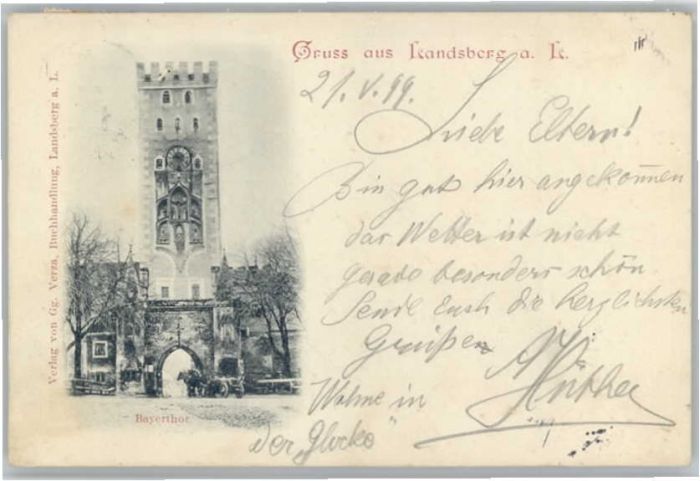 Gruss aus Landsberg a. L.
21. V. 99.
Liebe Eltern!
Bin gut hier angekommen
das Wetter ist nicht
gerade besonders schön
Sende Euch die herzlichsten
Grüße
Wohne in
der „Glocke“
Bayerthor
Verlag von Gg. Verza, Buchhandlung, Landsberg a. L.